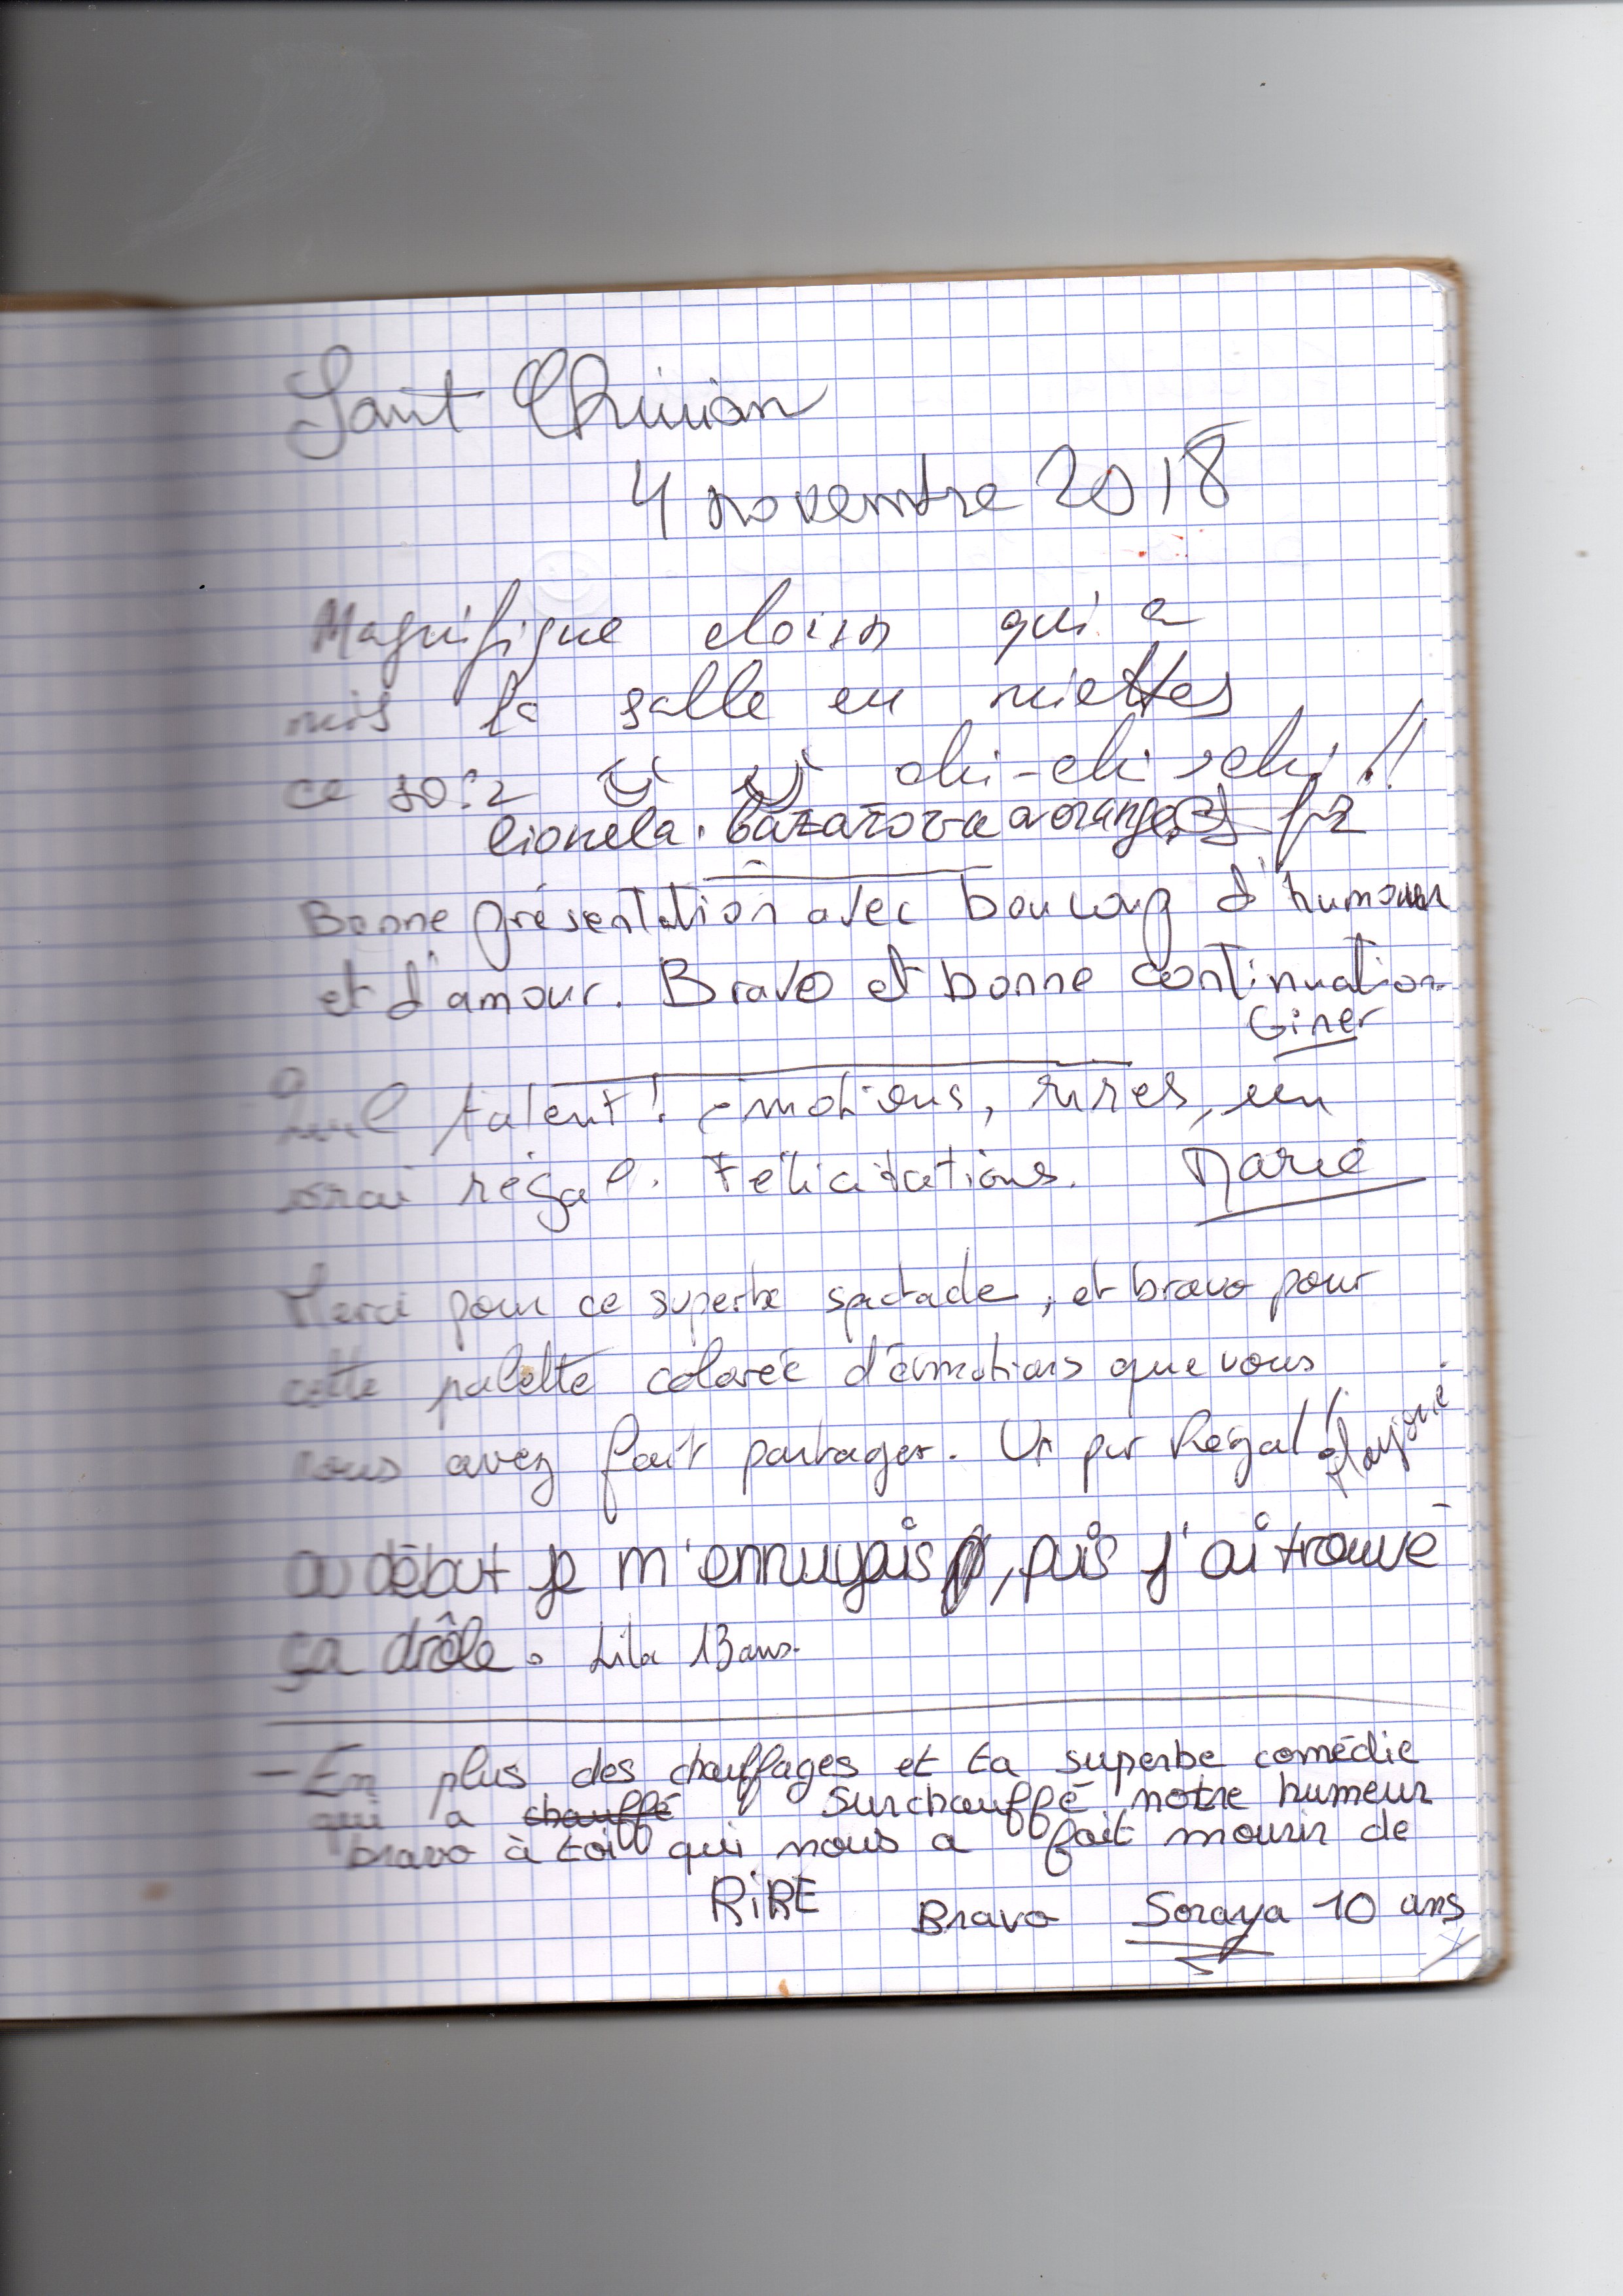 Saint Chinian
4 novembre 2018
Magnifique clown qui a
mis la salle en miettes
ce soir
Bonne présentation avec boucoup d'humour
et d'amour. Bravo et bonne continuation
Giner
Quel talent! émotions, rires, un
vrai régal. Félicitations. Marie
Merci pour ce superbe spectacle, et bravo pour
cette palette colorée d'émotions que vous
nous avez fait partager. Un pur Régal!
au début je m'ennuyais, puis j'ai trouvé
ça drôle. Lila 13 ans.
- En plus des chauffages et ta superbe comédie
qui a chauffé surchauffé notre humeur
bravo à toi qui nous a fait mourir de
RiRE Bravo Soraya 10 ans